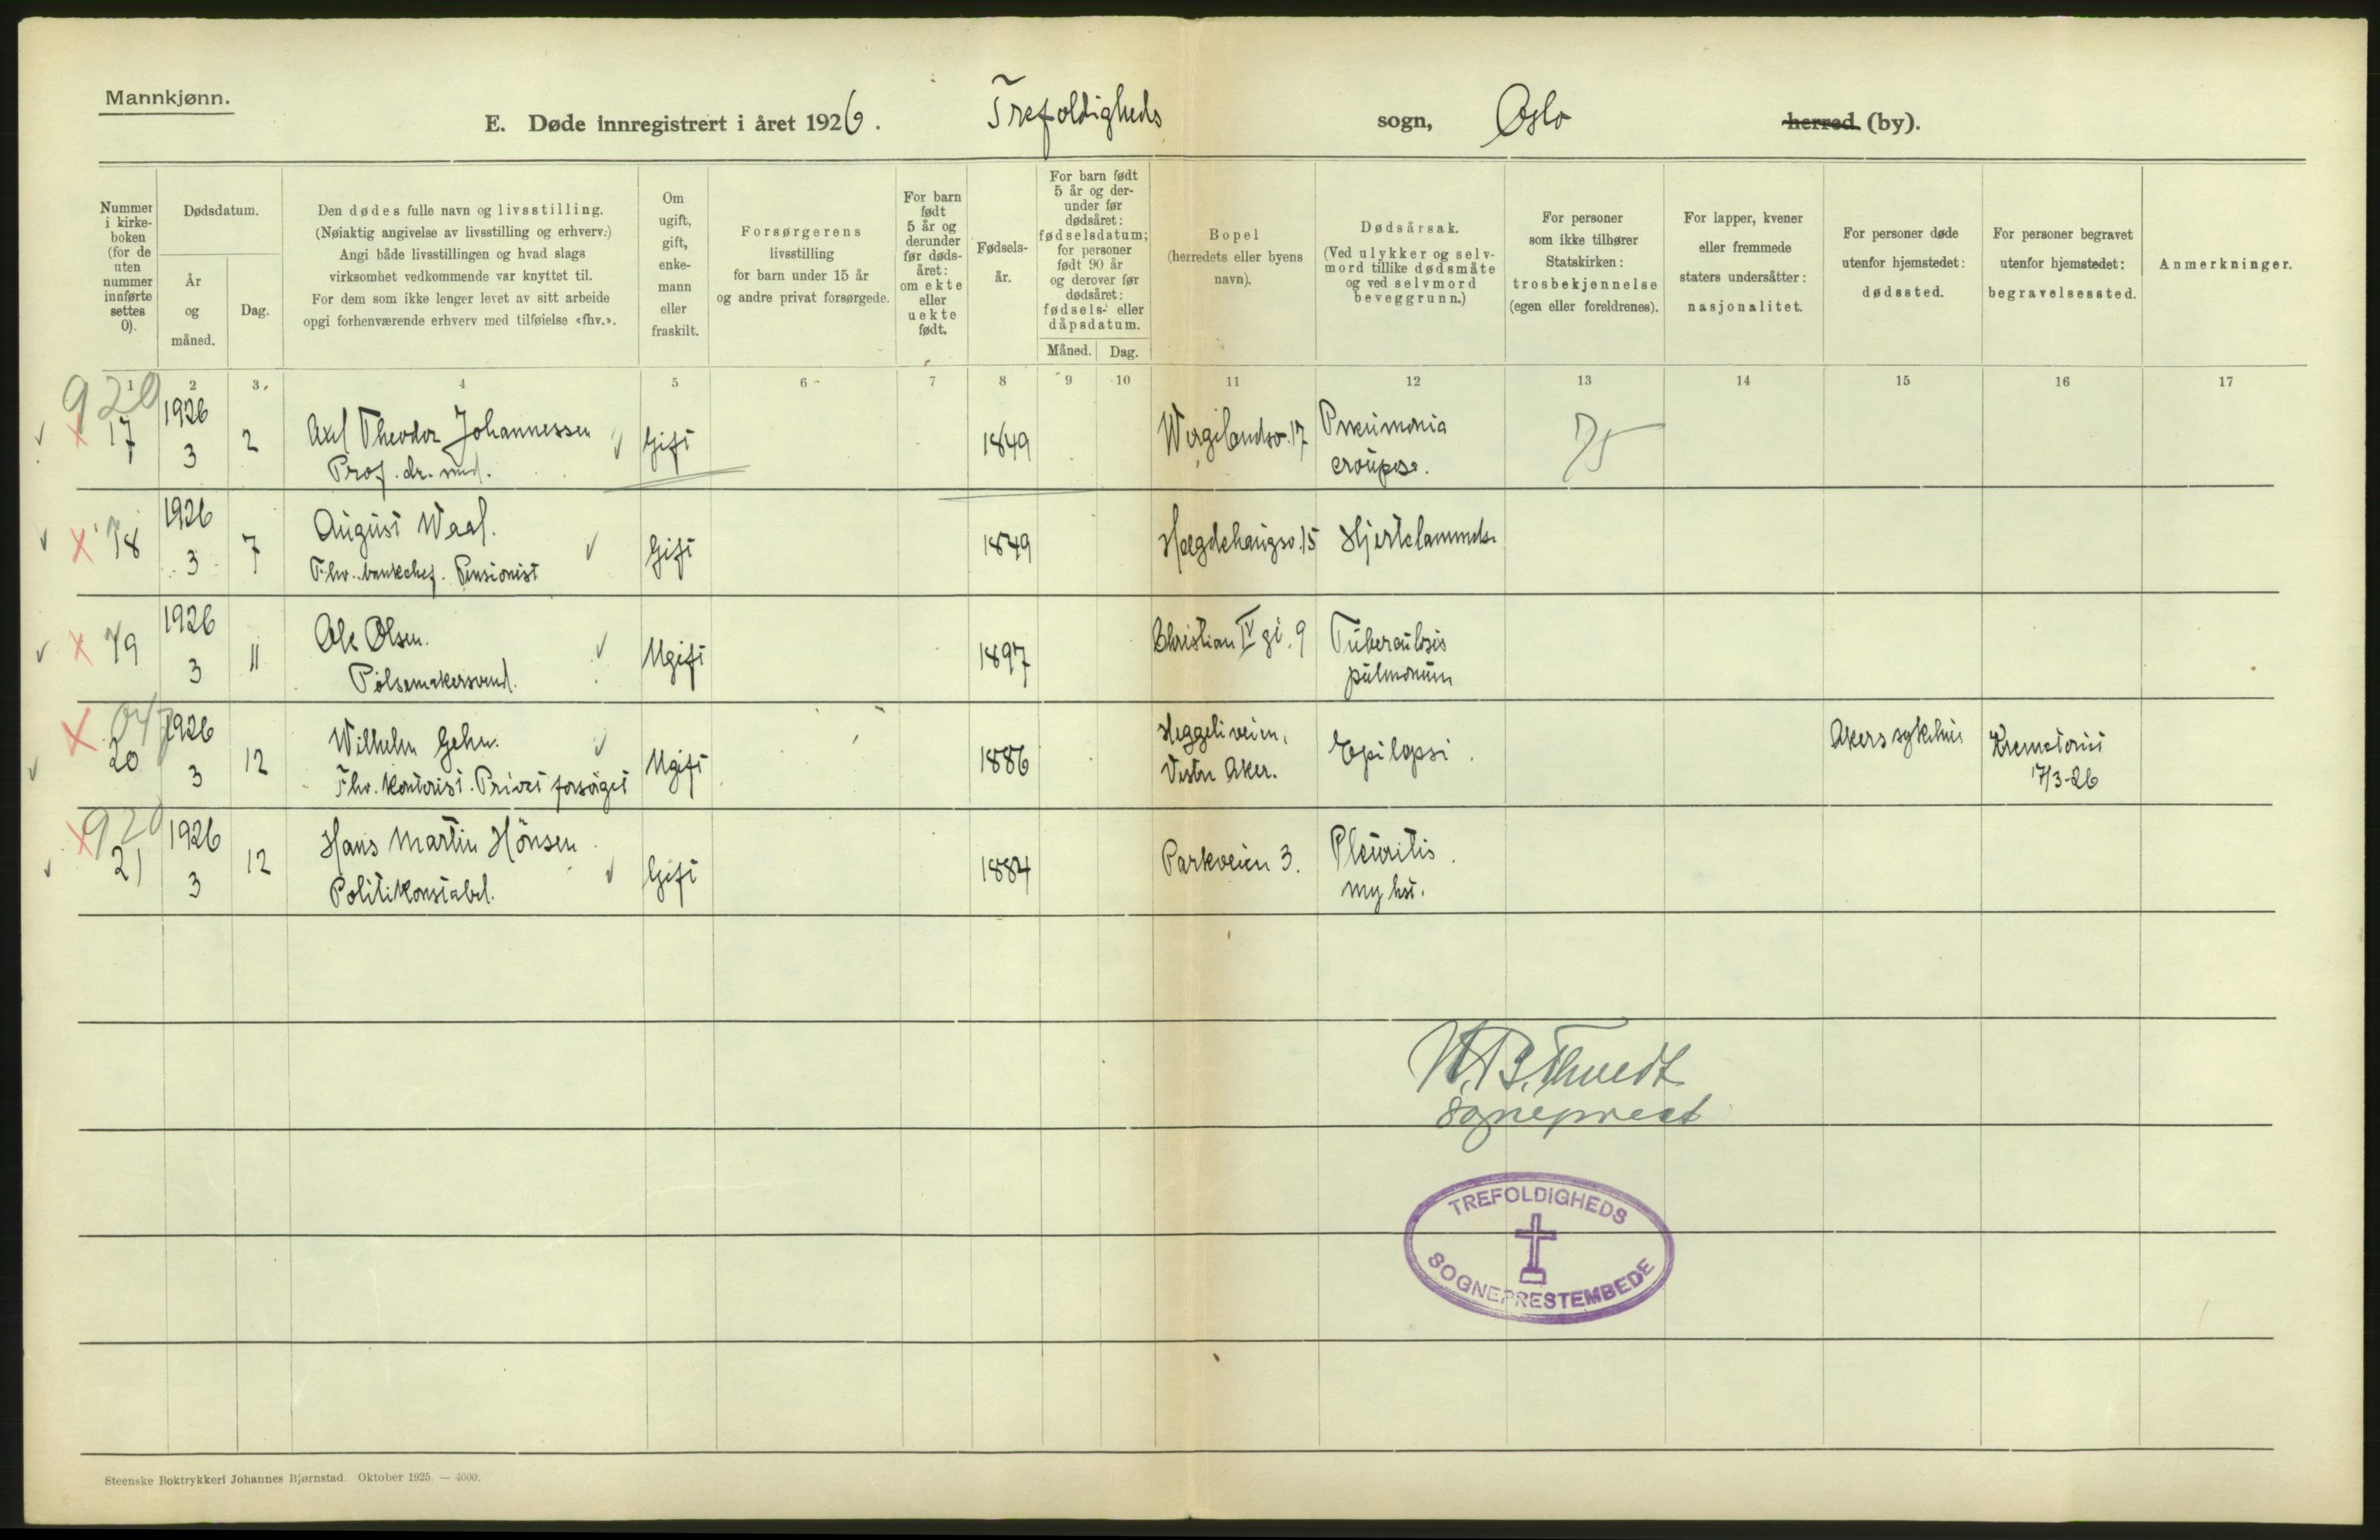 Mannkjønn.
E. Døde innregistrert i året 1926. Trefoldigheds sogn, Oslo herred (by).
Nummer i kirke-boken (for de uten nummer innførte settes 0).
Dødsdatum.
År og måned.
Dag.
Den dødes fulle navn og livsstilling.
(Nøiaktig angivelse av livsstilling og erhverv.)
Angi både livsstillingen og hvad slags
virksomhet vedkommende var knyttet til.
For dem som ikke lenger levet av sitt arbeide
opgi forhenværende erhverv med tilføielse «fhv.».
Om ugift, gift, enke-mann eller fraskilt.
Forsørgerens livsstilling for barn under 15 år og andre privat forsørgede.
For barn født 5 år og derunder før døds-året: om ekte eller uekte født.
Fødsels-år.
For barn født 5 år og der-under før dødsåret: fødselsdatum; for personer født 90 år og derover før dødsåret: fødsels- eller dåpsdatum.
Måned. Dag.
Bopel (herredets eller byens navn).
Dødsårsak. (Ved ulykker og selv-mord tillike dødsmåte og ved selvmord beveggrunn.)
For personer som ikke tilhører Statskirken: trosbekjennelse (egen eller foreldrenes).
For lapper, kvener eller fremmede staters undersåtter: nasjonalitet.
For personer døde utenfor hjemstedet: dødssted.
For personer begravet utenfor hjemstedet: begravelsessted.
Anmerkninger.
1 2 3 4 5 6 7 8 9 10 11 12 13 14 15 16 17
929
17 1926 3 2 Axel Theodor Johannessen Gift 1849 17 Pneumonia 75
Prof. dr. med. croupøs.
18 1926 3 7 August Waal. Gift 1849 Hægdehaugsv. 15 Hjertelammelse
Fhv. bankchef. Pensionist
19 1926 3 11 Ole Olsen. Ugift 1897 Christian IV gt. 9 Tuberculosis
Pølsemakersvend. pulmonum
047
20 1926 3 12 Wilhelm Gehn. Ugift 1886 Heggeliveien, Vestre Aker. Epilepsi. Akers sykehus Krematoriet
Fhv. kontorist. Privat forsørget 17/3-26
920
21 1926 3 12 Hans Martin Hönsen Gift 1884 Parkveien 3. Pleuritis.
Politikonstabel.
Sogneprest
TREFOLDIGHEDS
SOGNEPRESTEMBEDE
Steenske Boktrykkeri Johannes Bjørnstad. Oktober 1925. — 4000.